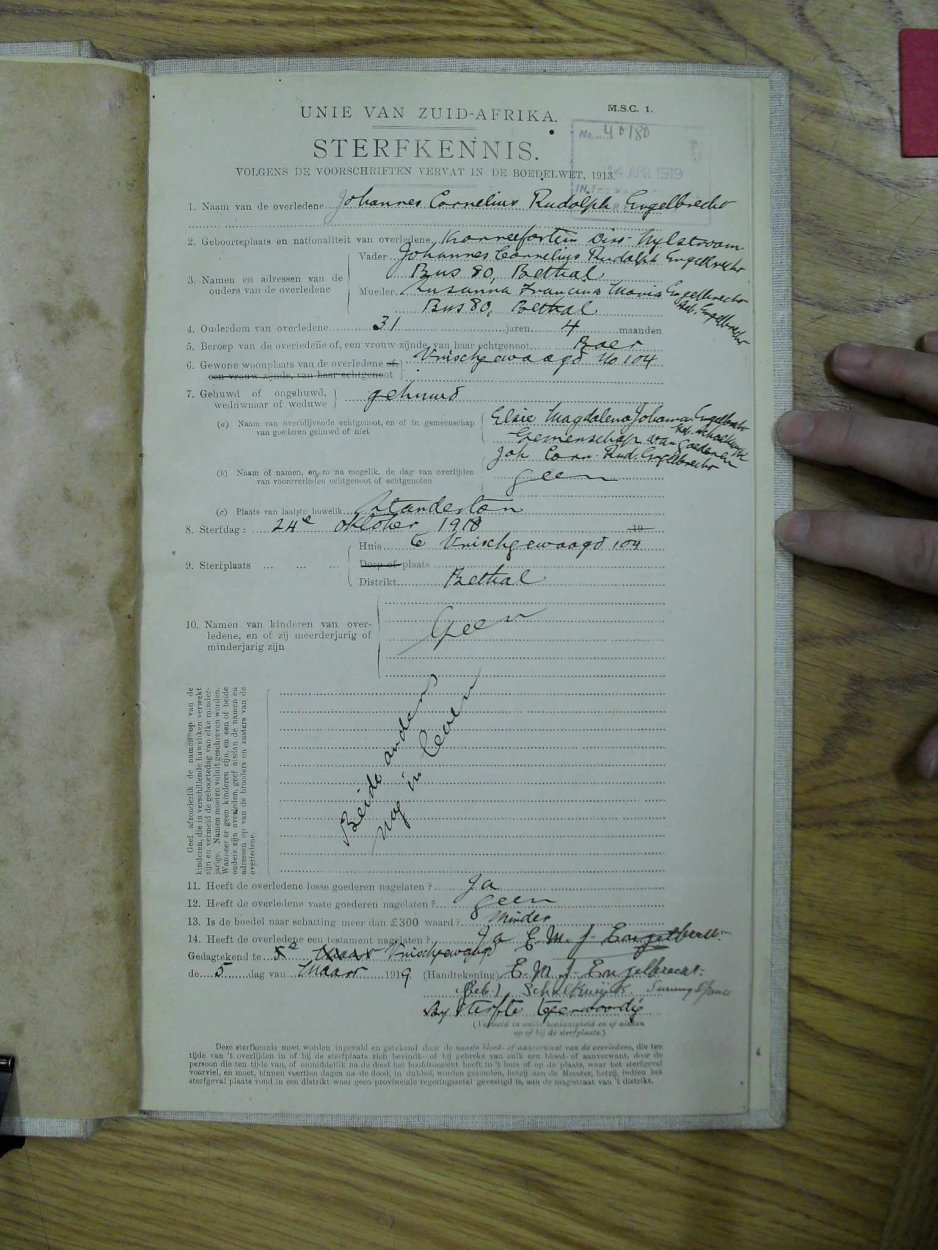 UNIE VAN ZUID-AFRIKA.
M.S.C. 1.
No. 40180
APR 1919
STERFKENNIS.
VOLGENS DE VOORSCHRIFTEN VERVAT IN DE BOEDELWET, 1913.
1. Naam van de overledene Johannes Cornelius Rudolph Engelbrecht
2. Geboorteplaats en nationaliteit van overledene Diss. Nylstroom
3. Namen en adressen van de ouders van de overledene
Vader Johannes Cornelius Rudolph Engelbrecht
Bus 80, Bethal
Moeder Susanna Francina Maria Engelbrecht
geb. Engelbrecht
Bus 80, Bethal
4. Ouderdom van overledene 31 jaren 4 maanden
5. Beroep van de overledene of, een vrouw zijnde, van haar echtgenoot Boer
6. Gewone woonplaats van de overledene of, een vrouw zijnde, van haar echtgenoot Vrischgewaagd No 104
7. Gehuwd of ongehuwd, weduwnaar of weduwe gehuwd
(a) Naam van overblijvende echtgenoot, en of in gemeenschap van goederen gehuwd of niet
Elsie Magdalena Johanna Engelbrecht
geb. Schalkwyk
Gemeenschap van Goederen
Joh. Corn. Rud. Engelbrecht
(b) Naam of namen, en, zo na mogelik, de dag van overlijden van vooroverleden echtgenoot of echtgenoten
geen
(c) Plaats van laatste huwelik Standerton
8. Sterfdag: 24e Oktober 1918 19
9. Sterfplaats ... ... ...
Huis
Dorp of plaats Vrischgewaagd 104
Distrikt Bethal
10. Namen van kinderen van overledene, en of zij meerderjarig of minderjarig zijn
Geen
Geef afzonderlik de namen op van de kinderen, die in verschillende huweliken verwekt zijn en vermeld de geboortedag van elke minderjarige. Namen moeten voluit geschreven worden. Wanneer er geen kinderen zijn, en een of beide ouders zijn overleden, geef alsdan de namen en adressen op van de broeders en zusters van de overledene.
Beide ouders
nog in leven
11. Heeft de overledene losse goederen nagelaten? Ja
12. Heeft de overledene vaste goederen nagelaten? geen
13. Is de boedel naar schatting meer dan £300 waard? Minder
14. Heeft de overledene een testament nagelaten? Ja E. M. J. Engelbrecht
Gedagtekend te Vrischgewaagd
de 5 dag van Maart 1919 (Handtekening) E. M. J. Engelbrecht
(geb.) Schalkwyk
By sterfte teenwoordig
(Vermeld in welke hoedanigheid en of alsdan op of bij de sterfplaats.)
Deze sterfkennis moet worden ingevuld en getekend door de naaste bloed- of aanverwant van de overledene, die ten
tijde van 't overlijden in of bij de sterfplaats zich bevindt—of bij gebreke van zulk een bloed- of aanverwant, door de
persoon die ten tijde van, of onmiddellik na de dood het hoofdtoezicht heeft in 't huis of op de plaats, waar het sterfgeval
voorviel, en moet, binnen veertien dagen na de dood, in dubbel, worden gezonden, hetzij aan de Meester, hetzij, indien het
sterfgeval plaats vond in een distrikt waar geen provinciale regeringszetel gevestigd is, aan de magistraat van 't distrikt.